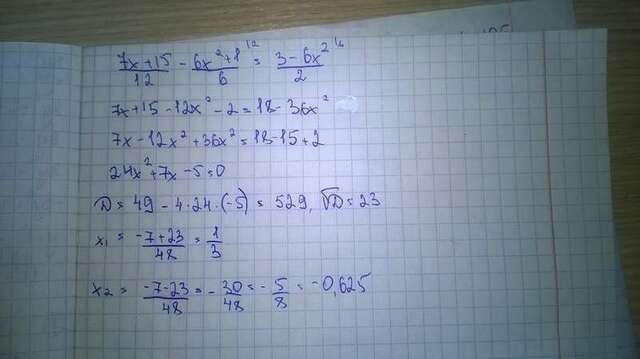 (7x+15)/12 - (6x²+1)/6 |2 = (3-6x²)/2 |6
7x+15-12x²-2=18-36x²
7x-12x²+36x²=18-15+2
24x²+7x-5=0
D=49-4·24·(-5)=529, √D=23
x₁=(-7+23)/48=1/3
x₂=(-7-23)/48=-30/48=-5/8=-0,625